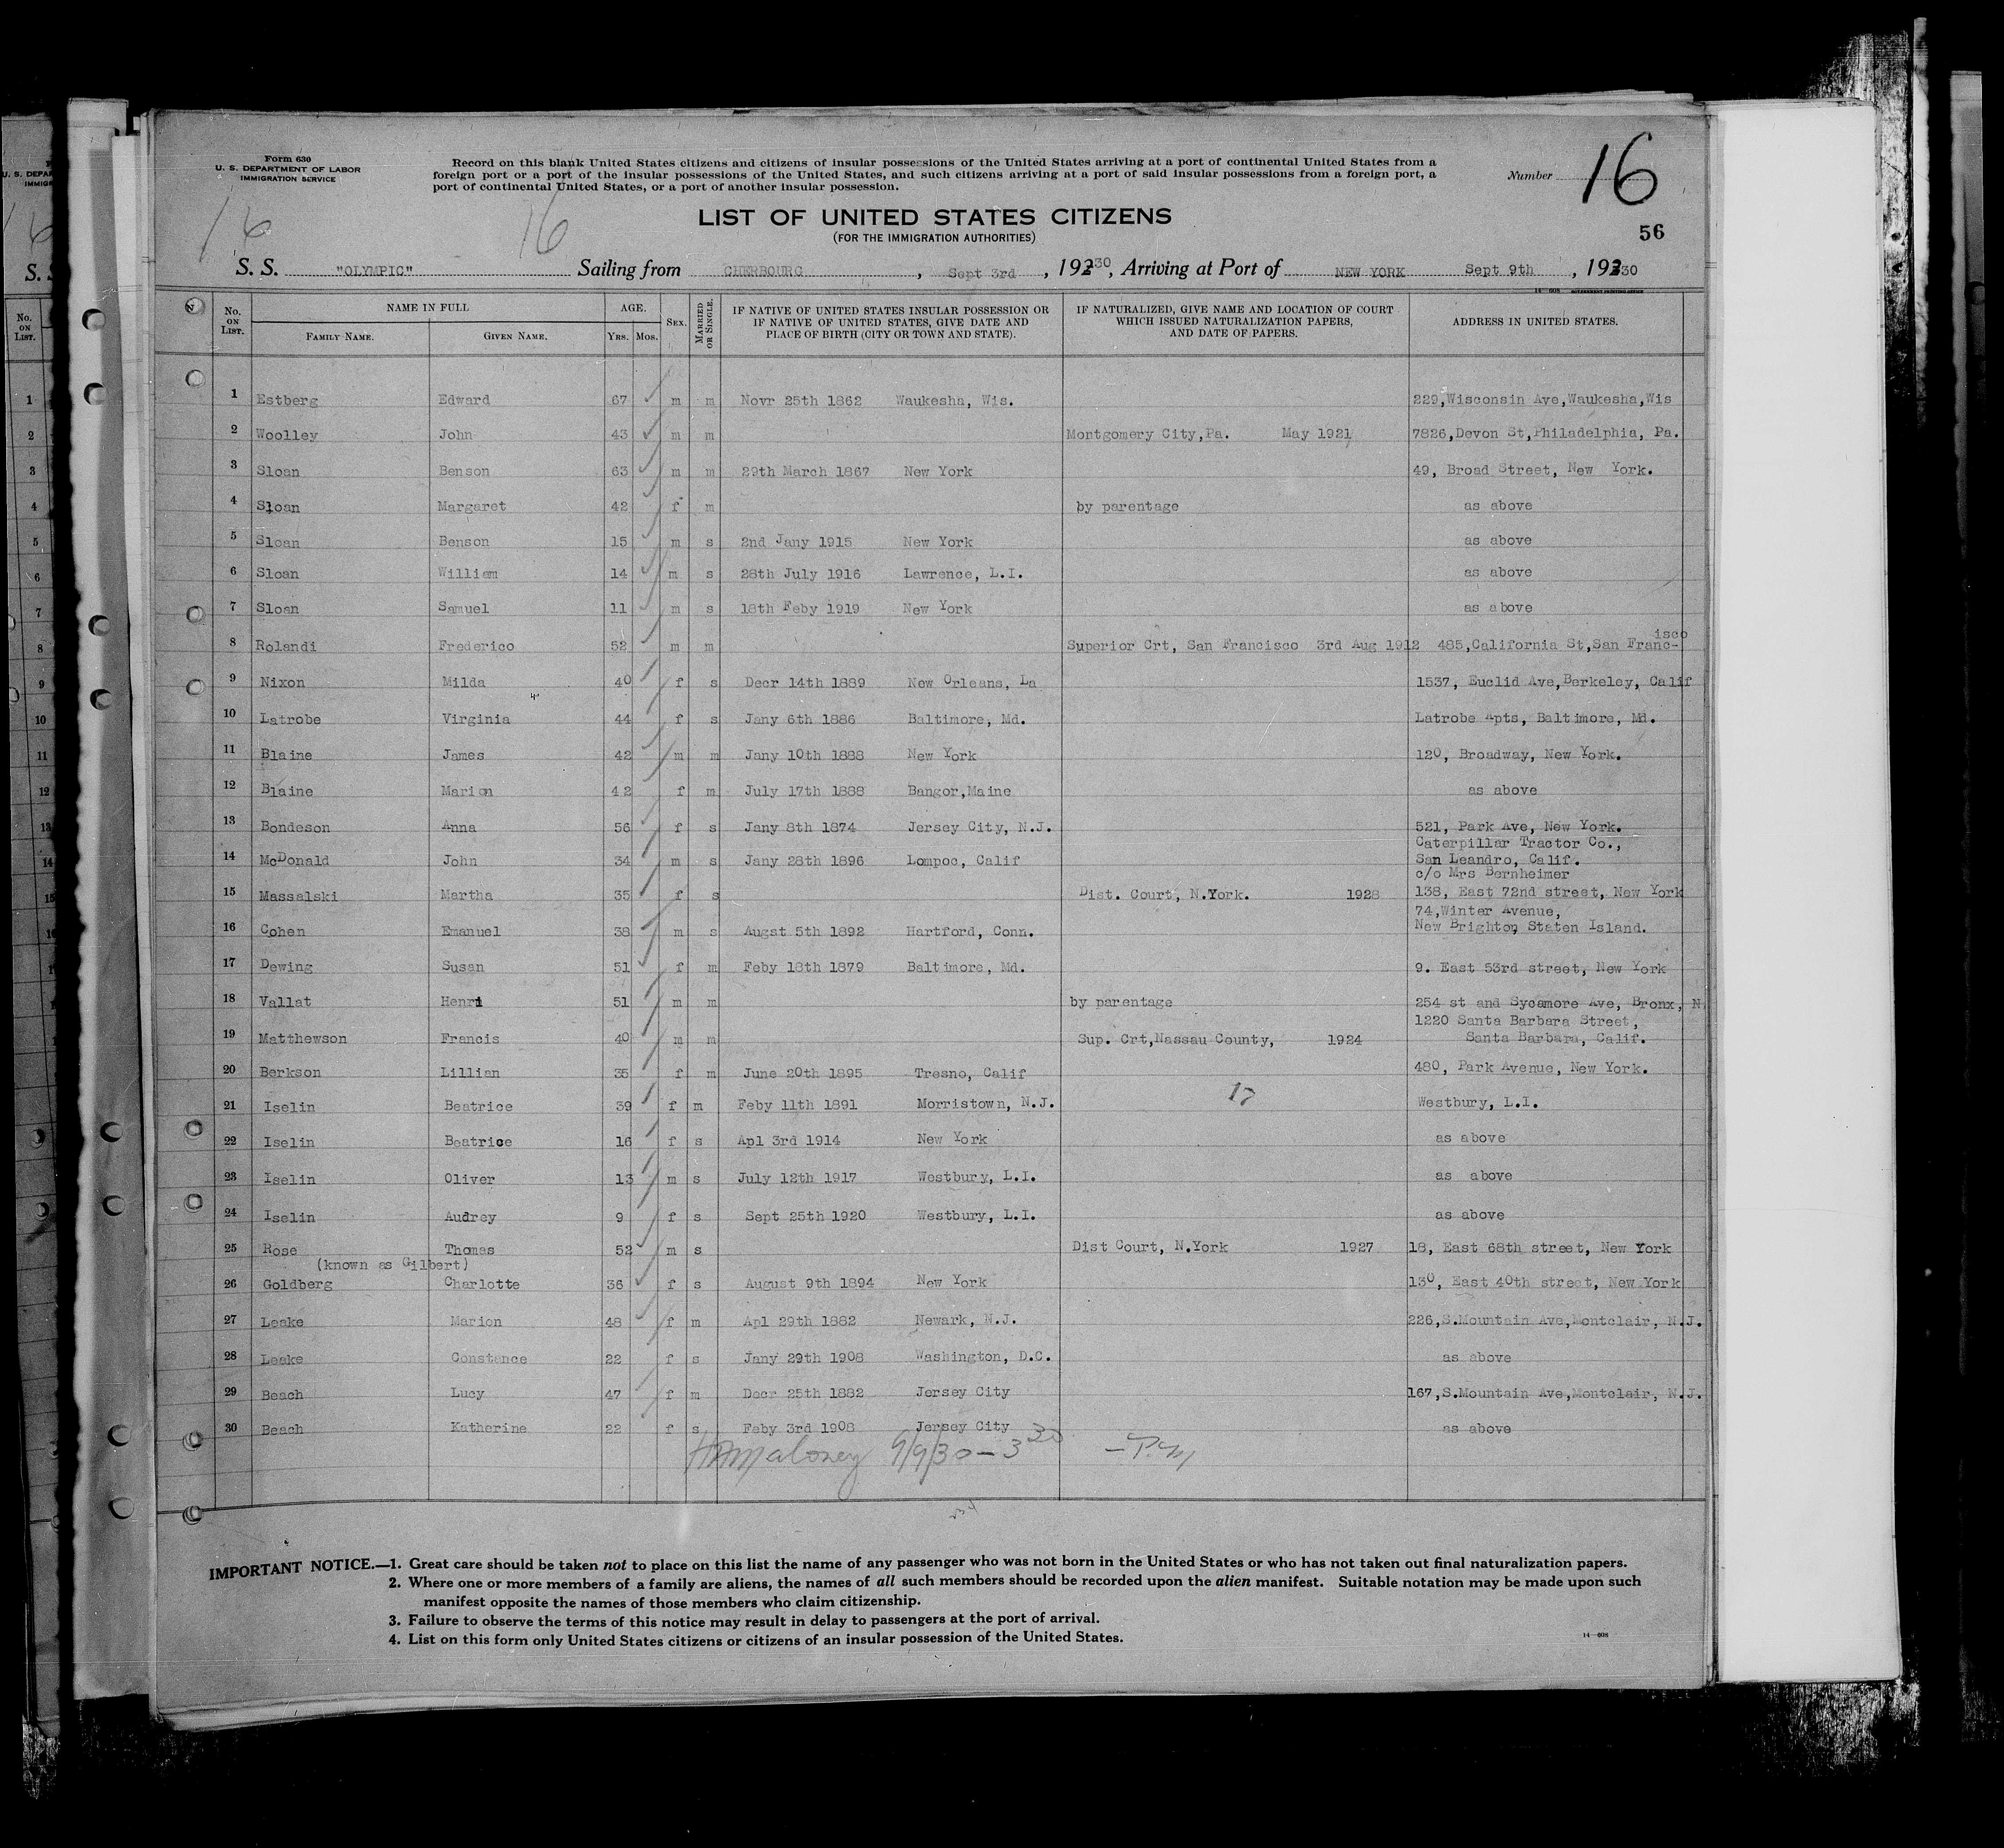 Form 630
U. S. DEPARTMENT OF LABOR
IMMIGRATION SERVICE
Record on this blank United States citizens and citizens of insular possessions of the United States arriving at a port of continental United States from a
foreign port or a port of the insular possessions of the United States, and such citizens arriving at a port of said insular possessions from a foreign port, a
port of continental United States, or a port of another insular possession.
Number 16
16 16
LIST OF UNITED STATES CITIZENS
(FOR THE IMMIGRATION AUTHORITIES)
56
S. S. "OLYMPIC" Sailing from CHERBOURG, Sept 3rd, 19230, Arriving at Port of NEW YORK Sept 9th, 19230
No. ON LIST. NAME IN FULL AGE. SEX. MARRIED OR SINGLE. IF NATIVE OF UNITED STATES INSULAR POSSESSION OR IF NATIVE OF UNITED STATES, GIVE DATE AND PLACE OF BIRTH (CITY OR TOWN AND STATE). IF NATURALIZED, GIVE NAME AND LOCATION OF COURT WHICH ISSUED NATURALIZATION PAPERS, AND DATE OF PAPERS. ADDRESS IN UNITED STATES.
FAMILY NAME. GIVEN NAME. YRS. MOS.
1 Estberg Edward 67 m m Novr 25th 1862 Waukesha, Wis. 229,Wisconsin Ave,Waukesha,Wis
2 Woolley John 43 m m Montgomery City,Pa. May 1921 7826,Devon St,Philadelphia, Pa.
3 Sloan Benson 63 m m 29th March 1867 New York 49, Broad Street, New York.
4 Sloan Margaret 42 f m by parentage as above
5 Sloan Benson 15 m s 2nd Jany 1915 New York as above
6 Sloan William 14 m s 28th July 1916 Lawrence, L.I. as above
7 Sloan Samuel 11 m s 18th Feby 1919 New York as above
8 Rolandi Frederico 52 m m Superior Crt, San Francisco 3rd Aug 1912 485,California St,San Franc-isco
9 Nixon Milda 40 f s Decr 14th 1889 New Orleans, La 1537, Euclid Ave,Berkeley, Calif
10 Latrobe Virginia 44 f s Jany 6th 1886 Baltimore, Md. Latrobe Apts, Baltimore, Md.
11 Blaine James 42 m m Jany 10th 1888 New York 120, Broadway, New York.
12 Blaine Marion 42 f m July 17th 1888 Bangor,Maine as above
13 Bondeson Anna 56 f s Jany 8th 1874 Jersey City, N.J. 521, Park Ave, New York.
Caterpillar Tractor Co.,
14 McDonald John 34 m s Jany 28th 1896 Lompoc, Calif San Leandro, Calif.
c/o Mrs Bernheimer
15 Massalski Martha 35 f s Dist. Court, N.York. 1928 138, East 72nd street, New York
74,Winter Avenue,
16 Cohen Emanuel 38 m s Augst 5th 1892 Hartford, Conn. New Brighton, Staten Island.
17 Dewing Susan 51 f m Feby 18th 1879 Baltimore, Md. 9. East 53rd street, New York
18 Vallat Henri 51 m m by parentage 254 st and Sycamore Ave, Bronx, N
1220 Santa Barbara Street,
19 Matthewson Francis 40 m m Sup. Crt,Nassau County, 1924 Santa Barbara, Calif.
20 Berkson Lillian 35 f m June 20th 1895 Tresno, Calif 480, Park Avenue, New York.
21 Iselin Beatrice 39 f m Feby 11th 1891 Morristown, N.J. 17 Westbury, L.I.
22 Iselin Beatrice 16 f s Apl 3rd 1914 New York as above
23 Iselin Oliver 13 m s July 12th 1917 Westbury, L.I. as above
24 Iselin Audrey 9 f s Sept 25th 1920 Westbury, L.I. as above
25 Rose Thomas 52 m s Dist Court, N.York 1927 18, East 68th street, New York
(known as Gilbert)
26 Goldberg Charlotte 36 f s August 9th 1894 New York 130, East 40th street, New York
27 Leake Marion 48 f m Apl 29th 1882 Newark, N.J. 226,S.Mountain Ave,Montclair, N.J.
28 Leake Constance 22 f s Jany 29th 1908 Washington, D.C. as above
29 Beach Lucy 47 f m Decr 25th 1882 Jersey City 167,S.Mountain Ave,Montclair, N.J.
30 Beach Katherine 22 f s Feby 3rd 1908 Jersey City as above
Maloney 9/9/30 - 3 30 - P.M
IMPORTANT NOTICE.—1. Great care should be taken not to place on this list the name of any passenger who was not born in the United States or who has not taken out final naturalization papers.
2. Where one or more members of a family are aliens, the names of all such members should be recorded upon the alien manifest. Suitable notation may be made upon such
manifest opposite the names of those members who claim citizenship.
3. Failure to observe the terms of this notice may result in delay to passengers at the port of arrival.
4. List on this form only United States citizens or citizens of an insular possession of the United States.
14—608